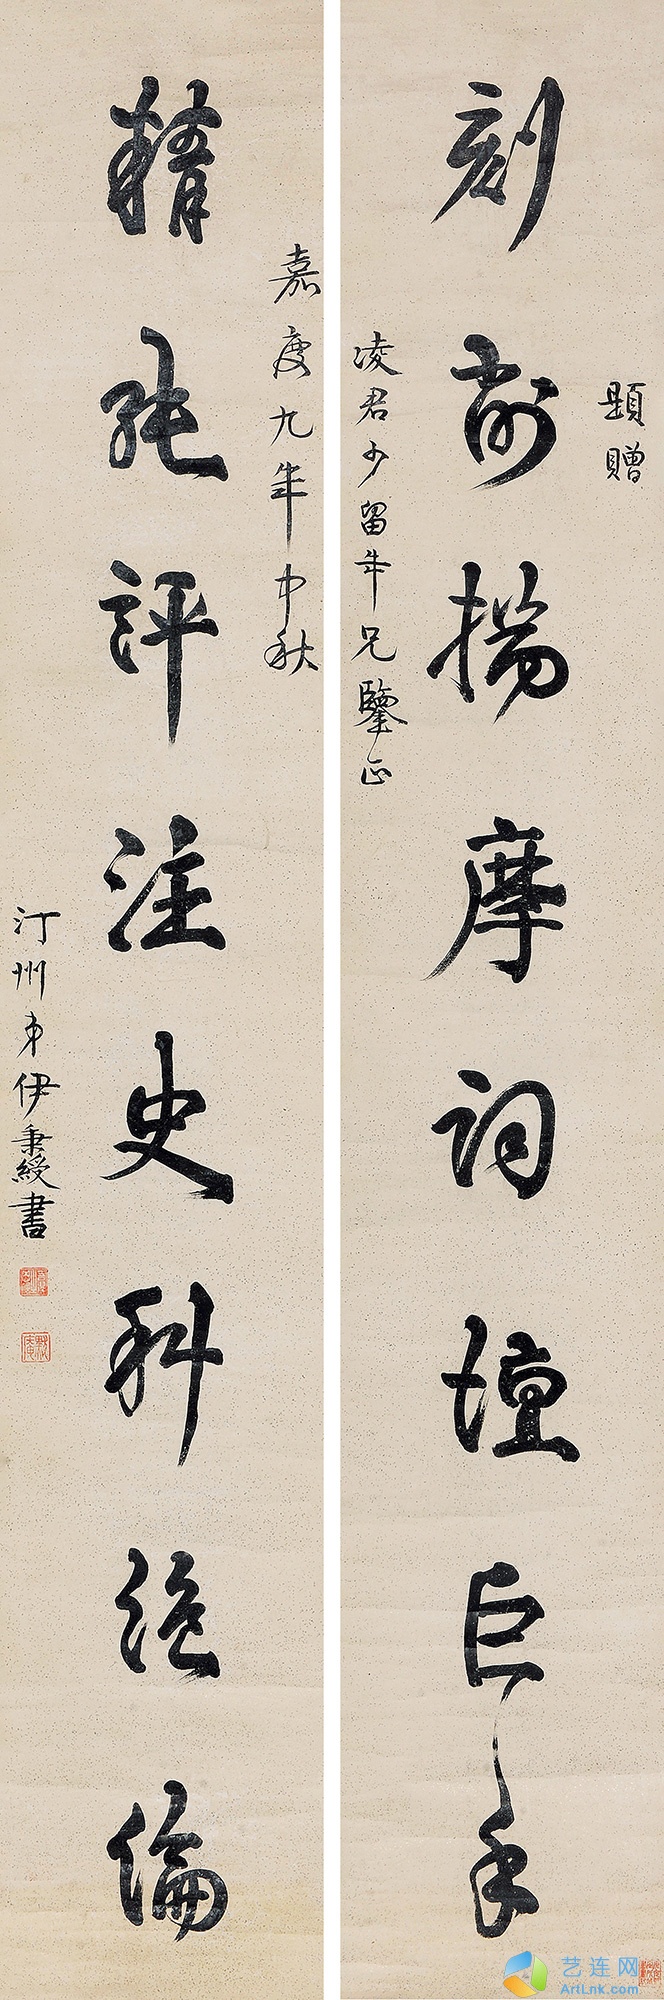 題贈
刻揚摩詞壇巨手
凌君少留年兄鑒正
嘉慶九年中秋
精評注史科絕倫
汀州弟伊秉綬書
艺连网
ArtLnk.com